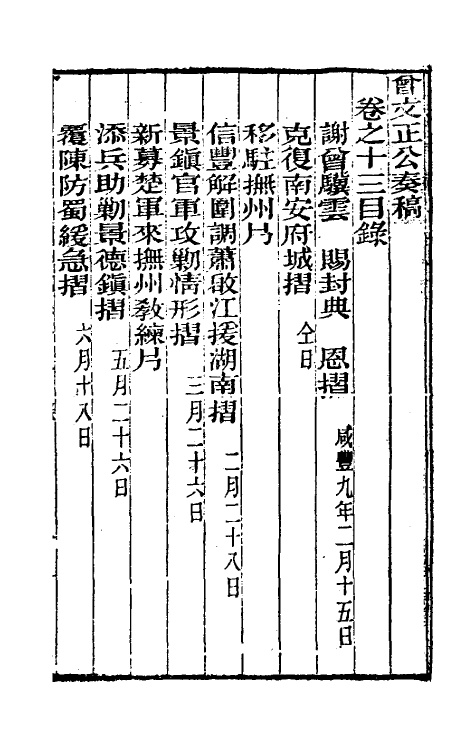 曾文正公奏稿
卷之十三目錄
謝曾驥雲 賜封典 恩摺 咸豐九年二月十五日
克復南安府城摺 仝日
移駐撫州片
信豐解圍調蕭啟江援湖南摺 二月二十八日
景鎮官軍攻勦情形摺 三月二十六日
新募楚軍來撫州敎練片
添兵助勦景德鎮摺 五月二十六日
覆陳防蜀緩急摺 六月十八日